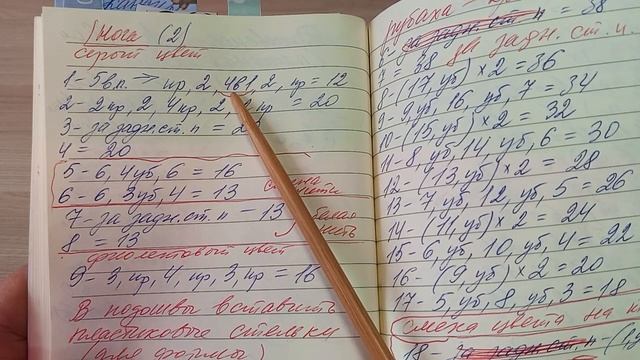 Нога (2)
серый цвет
1 - 5 в.п. → пр, 2, 4в1, 2, пр = 12
2 - 2пр, 2, 4пр, 2, 2пр = 20
3 - за задн. ст. п = 20
4 = 20
5 - 6, 4уб, 6 = 16
6 - 6, 3уб, 4 = 13
7 - за задн. ст. п - 13
8 = 13
белая нить
фиолентовый цвет
9 - 3, пр, 4, пр, 3, пр = 16
В подошвы вставить
пластиковые стельки
(для формы)
рубаха
за задн. ст. п = 38
7 = 38 за задн. ст. п.
8 - (17, уб) × 2 = 36
9 - 9, уб, 16, уб, 7 = 34
10 - (15, уб) × 2 = 32
11 - 8, уб, 14, уб, 6 = 30
12 - (13, уб) × 2 = 28
13 - 7, уб, 12, уб, 5 = 26
14 - (11, уб) × 2 = 24
15 - 6, уб, 10, уб, 4 = 22
16 - (9, уб) × 2 = 20
17 - 5, уб, 8, уб, 3 = 18
Смена цвета на
18 - за задн. ст. п -